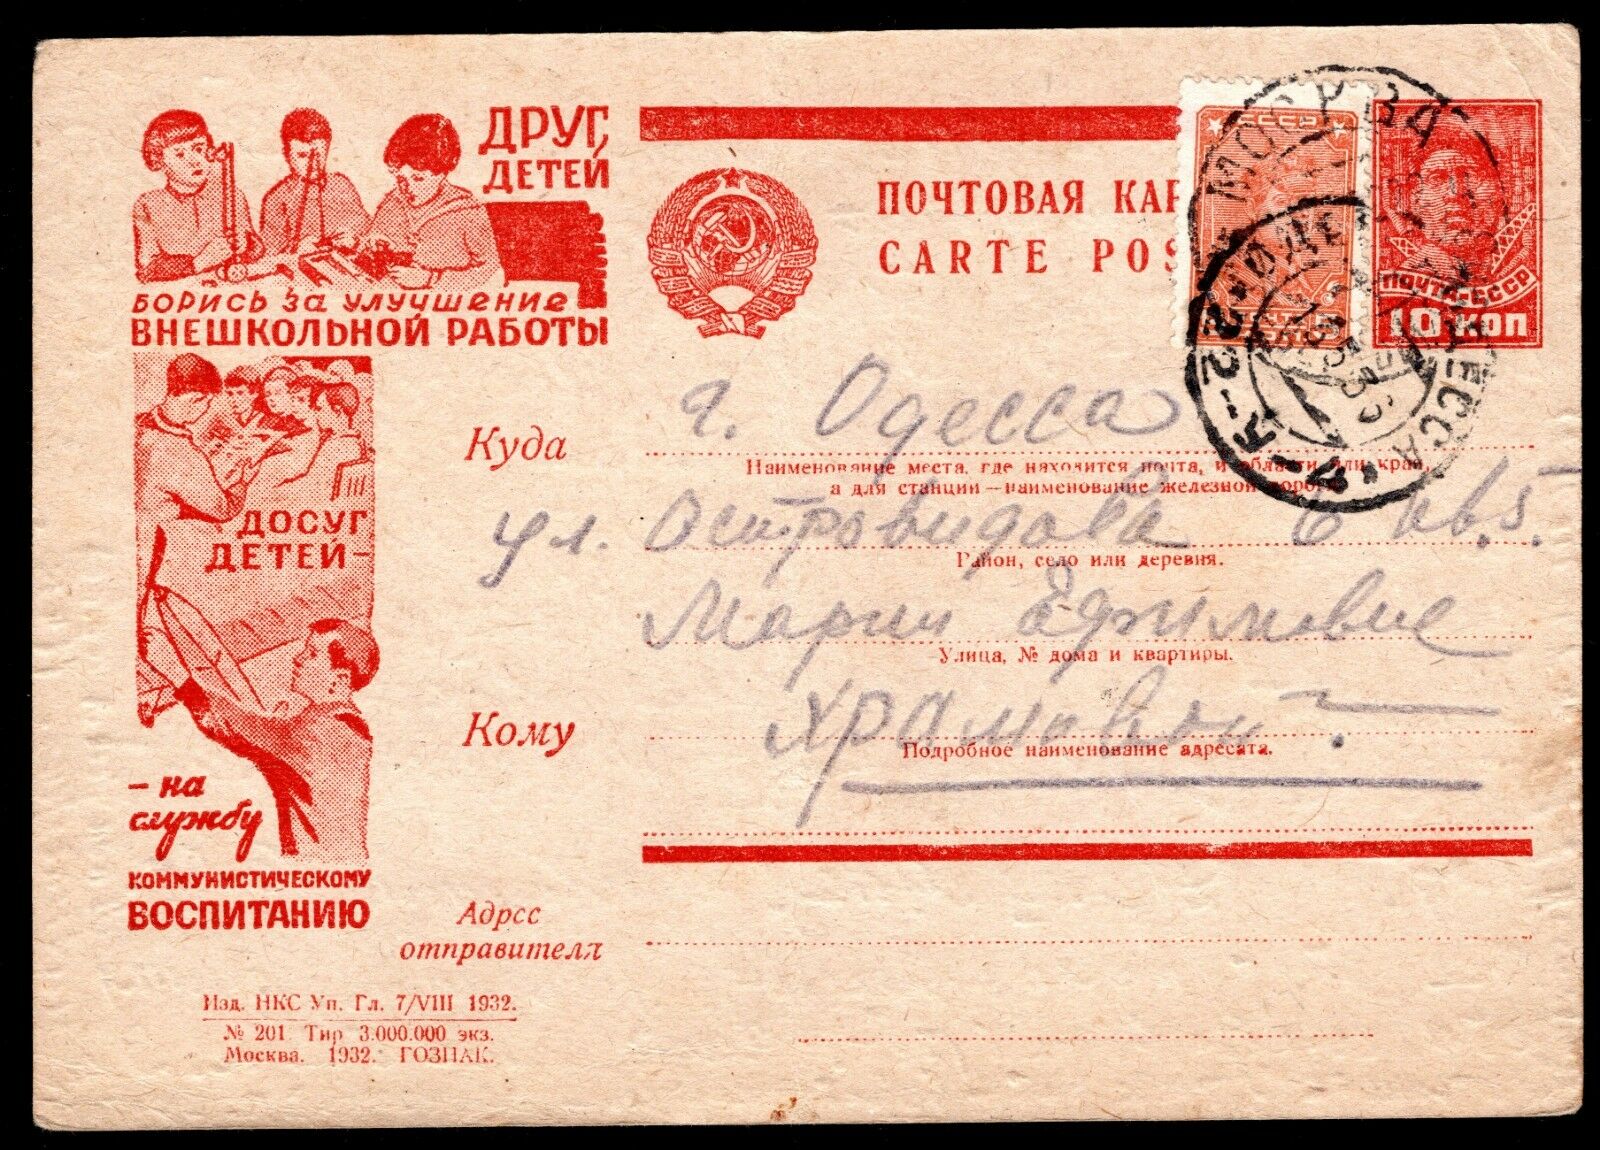 ДРУГ
ДЕТЕЙ,
БОРИСЬ ЗА УЛУЧШЕНИЕ
ВНЕШКОЛЬНОЙ РАБОТЫ
ДОСУГ
ДЕТЕЙ —
— на
службу
КОММУНИСТИЧЕСКОМУ
ВОСПИТАНИЮ
Изд. НКС Уп. Гл. 7/VIII 1932.
№ 201 Тир 3.000.000 экз.
Москва. 1932. ГОЗНАК.
ПОЧТОВАЯ КАР
CARTE POS
СССР
ПОЧТА СССР
10 КОП
МОСКВА
ОДЕССА
Куда
г. Одесса
Наименование места, где находится почта, и области или края,
а для станции — наименование железной дороги
ул. Островидова 6 кв. 5.
Район, село или деревня.
Марии Ефимовне
Улица, № дома и квартиры.
Кому
Храмовой.
Подробное наименование адресата.
Адрес
отправителя